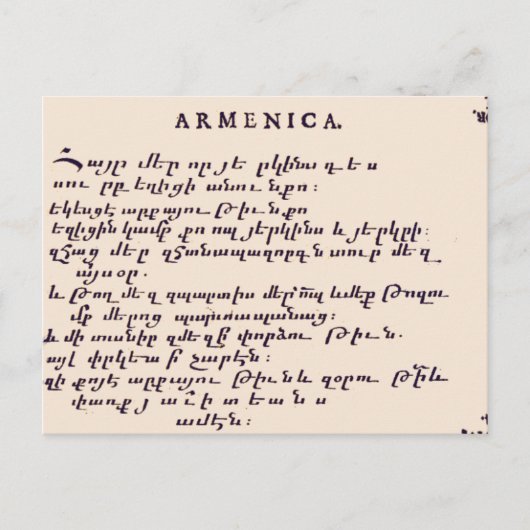 ARMENICA.
Հայր մեր որ յե րկինս ես
սու րբ եղիցի անու ն քո ։
եկեսցէ արքայու թիւն քո
եղիցին կամք քո որպ յերկինս և յերկրի ։
զհաց մեր զհանապազորդ ն տուր մեզ
այսօր .
և թող մեզ զպարտիս մեր և մեք թողու
մք մերոց պարտապանաց ։
և մի տանիր զմեզ ի փորձու թիւն .
այլ փրկեա ի չարէն ։
զի քոյ է արքայու թիւն և զօրու թի և
փառք յ ա ի տ ե ա ն ս
ամէն ։